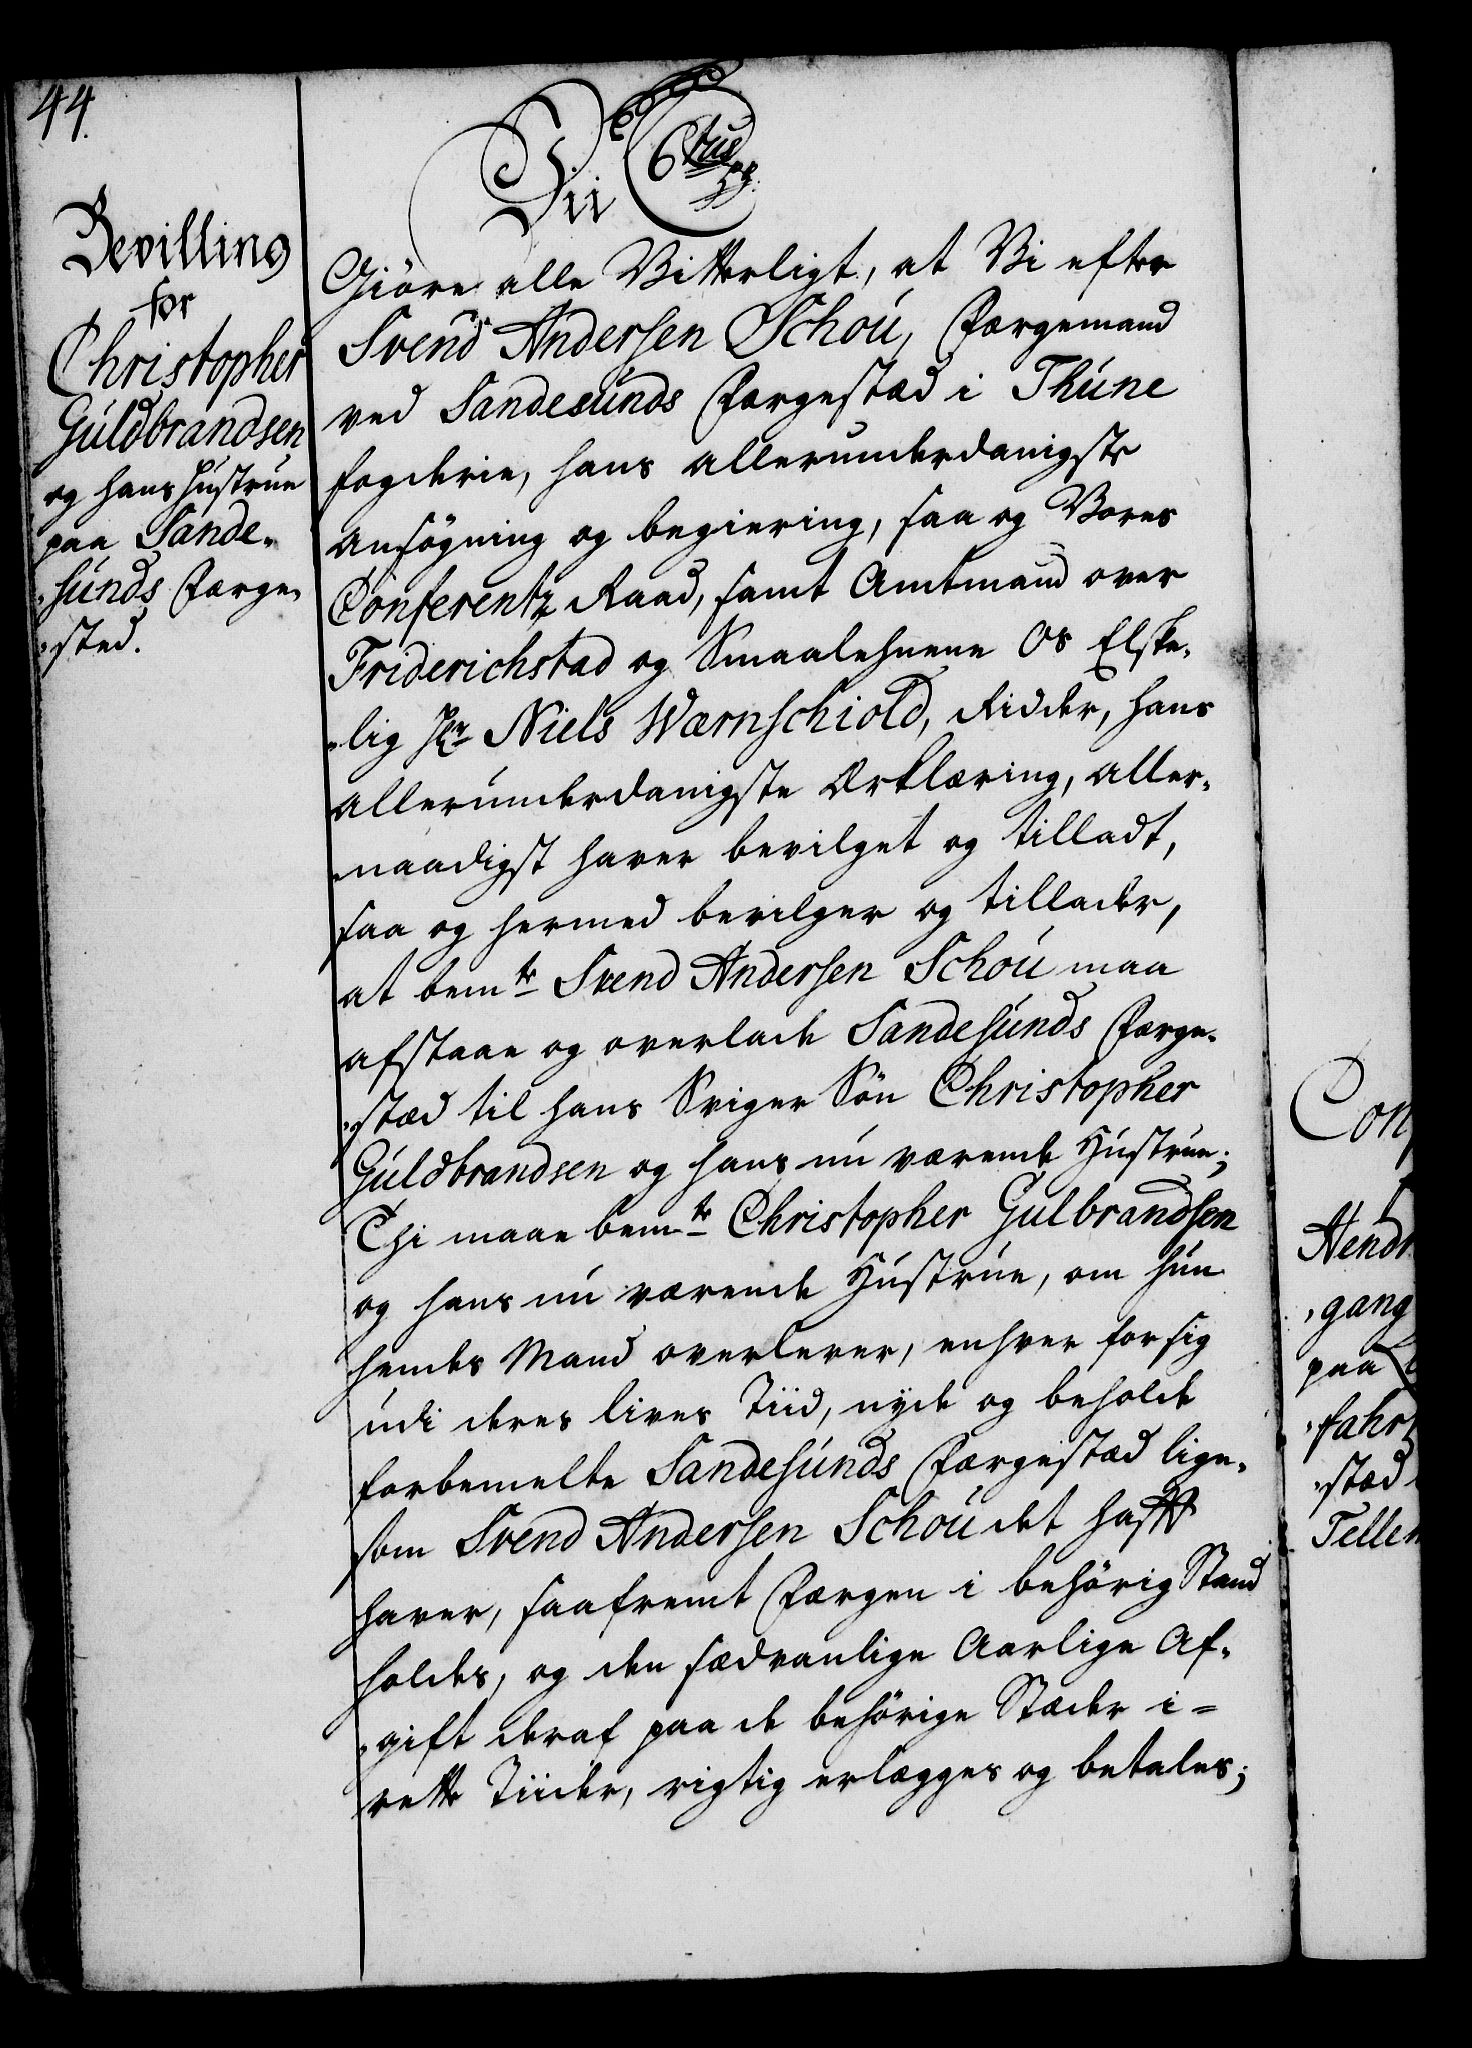 44.
Bevilling
for
Christopher
Guldbrandsen
og hans Hustrue
paa Sande-
-sunds Færge-
-sted.
Vii C 6tus
Giöre alle Vitterligt, at Vi efter
Svend Andersen Schou, Færgemand
ved Sandesunds Færgestæd i Thune
fogderie, hans allerunderdanigste
ansögning og begiering, saa og Vores
Conferentz Raad, samt Amtmand over
Friderichstad og Smaalehnene Os Elske-
-lig Hr Niels Wærnschiold, Ridder, hans
allerunderdanigste Erklæring, aller-
naadigst haver bevilget og tilladt,
saa og hermed bevilger og tillader,
at bemte Svend Andersen Schou maa
afstaae og overlade Sandesunds Færge-
-stæd til hans Sviger Sön Christopher
Guldbrandsen og hans nu værende Hustrue;
Thi maae bemte Christopher Gulbrandsen
og hans nu værende Hustrue, om hun
hendes Mand overlever, enhver for sig
udi deres lives Tiid, nyde og beholde
forbemelte Sandesunds Færgestæd lige-
som Svend Andersen Schou det hafft
haver, saafremt Færgen i behörig Stand
holdes, og den sædvanlige Aarlige Af-
-gift deraf paa de behörige Stæder i=
rette Tiider, rigtig erlægges og betales;
Con
Hend
-gang
paa
-fahrt
-stæd
Tellem